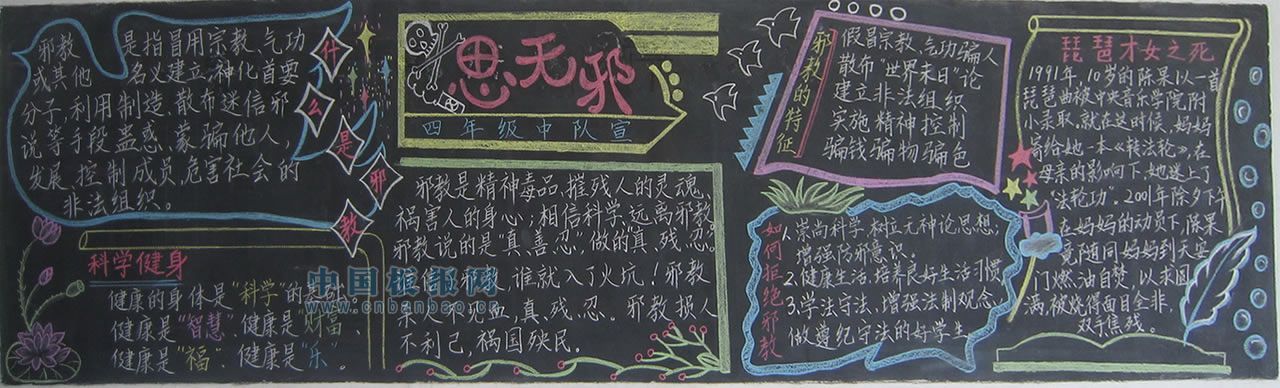 什么是邪教
邪教 是指冒用宗教、气功
或其他 名义建立,神化首要
分子,利用制造、散布迷信邪
说等手段蛊惑、蒙骗他人,
发展、控制成员,危害社会的
非法组织。
科学健身
健康的身体是“科学”的
健康是“智慧”健康是“财富”、
健康是“福”、健康是“乐”。
思无邪
四年级中队宣
邪教是精神毒品,摧残人的灵魂,
祸害人的身心;相信科学,远离邪教。
邪教说的是“真、善、忍”,做的真、残、忍。
谁就入了火坑!邪教
杀人不见血,真、残、忍。邪教损人
不利己,祸国殃民。
中国板报网
www.cnbanbao.cn
邪教的特征
假冒宗教、气功骗人
散布“世界末日”论
建立非法组织
实施精神控制
骗钱骗物骗色
如何拒绝邪教
1.崇尚科学,树立无神论思想,
增强防邪意识。
2.健康生活,培养良好生活习惯
3.学法守法,增强法制观念,
做遵纪守法的好学生
琵琶才女之死
1991年,10岁的陈果以一首
琵琶曲被中央音乐学院附
小录取,就在这时候,妈妈
寄给她一本《转法轮》,在
母亲的影响下,她迷上了
“法轮功”。2001年除夕下午
在妈妈的动员下,陈果
竟随同妈妈到天安
门燃油自焚,以求圆
满,被烧得面目全非,
双手焦残。